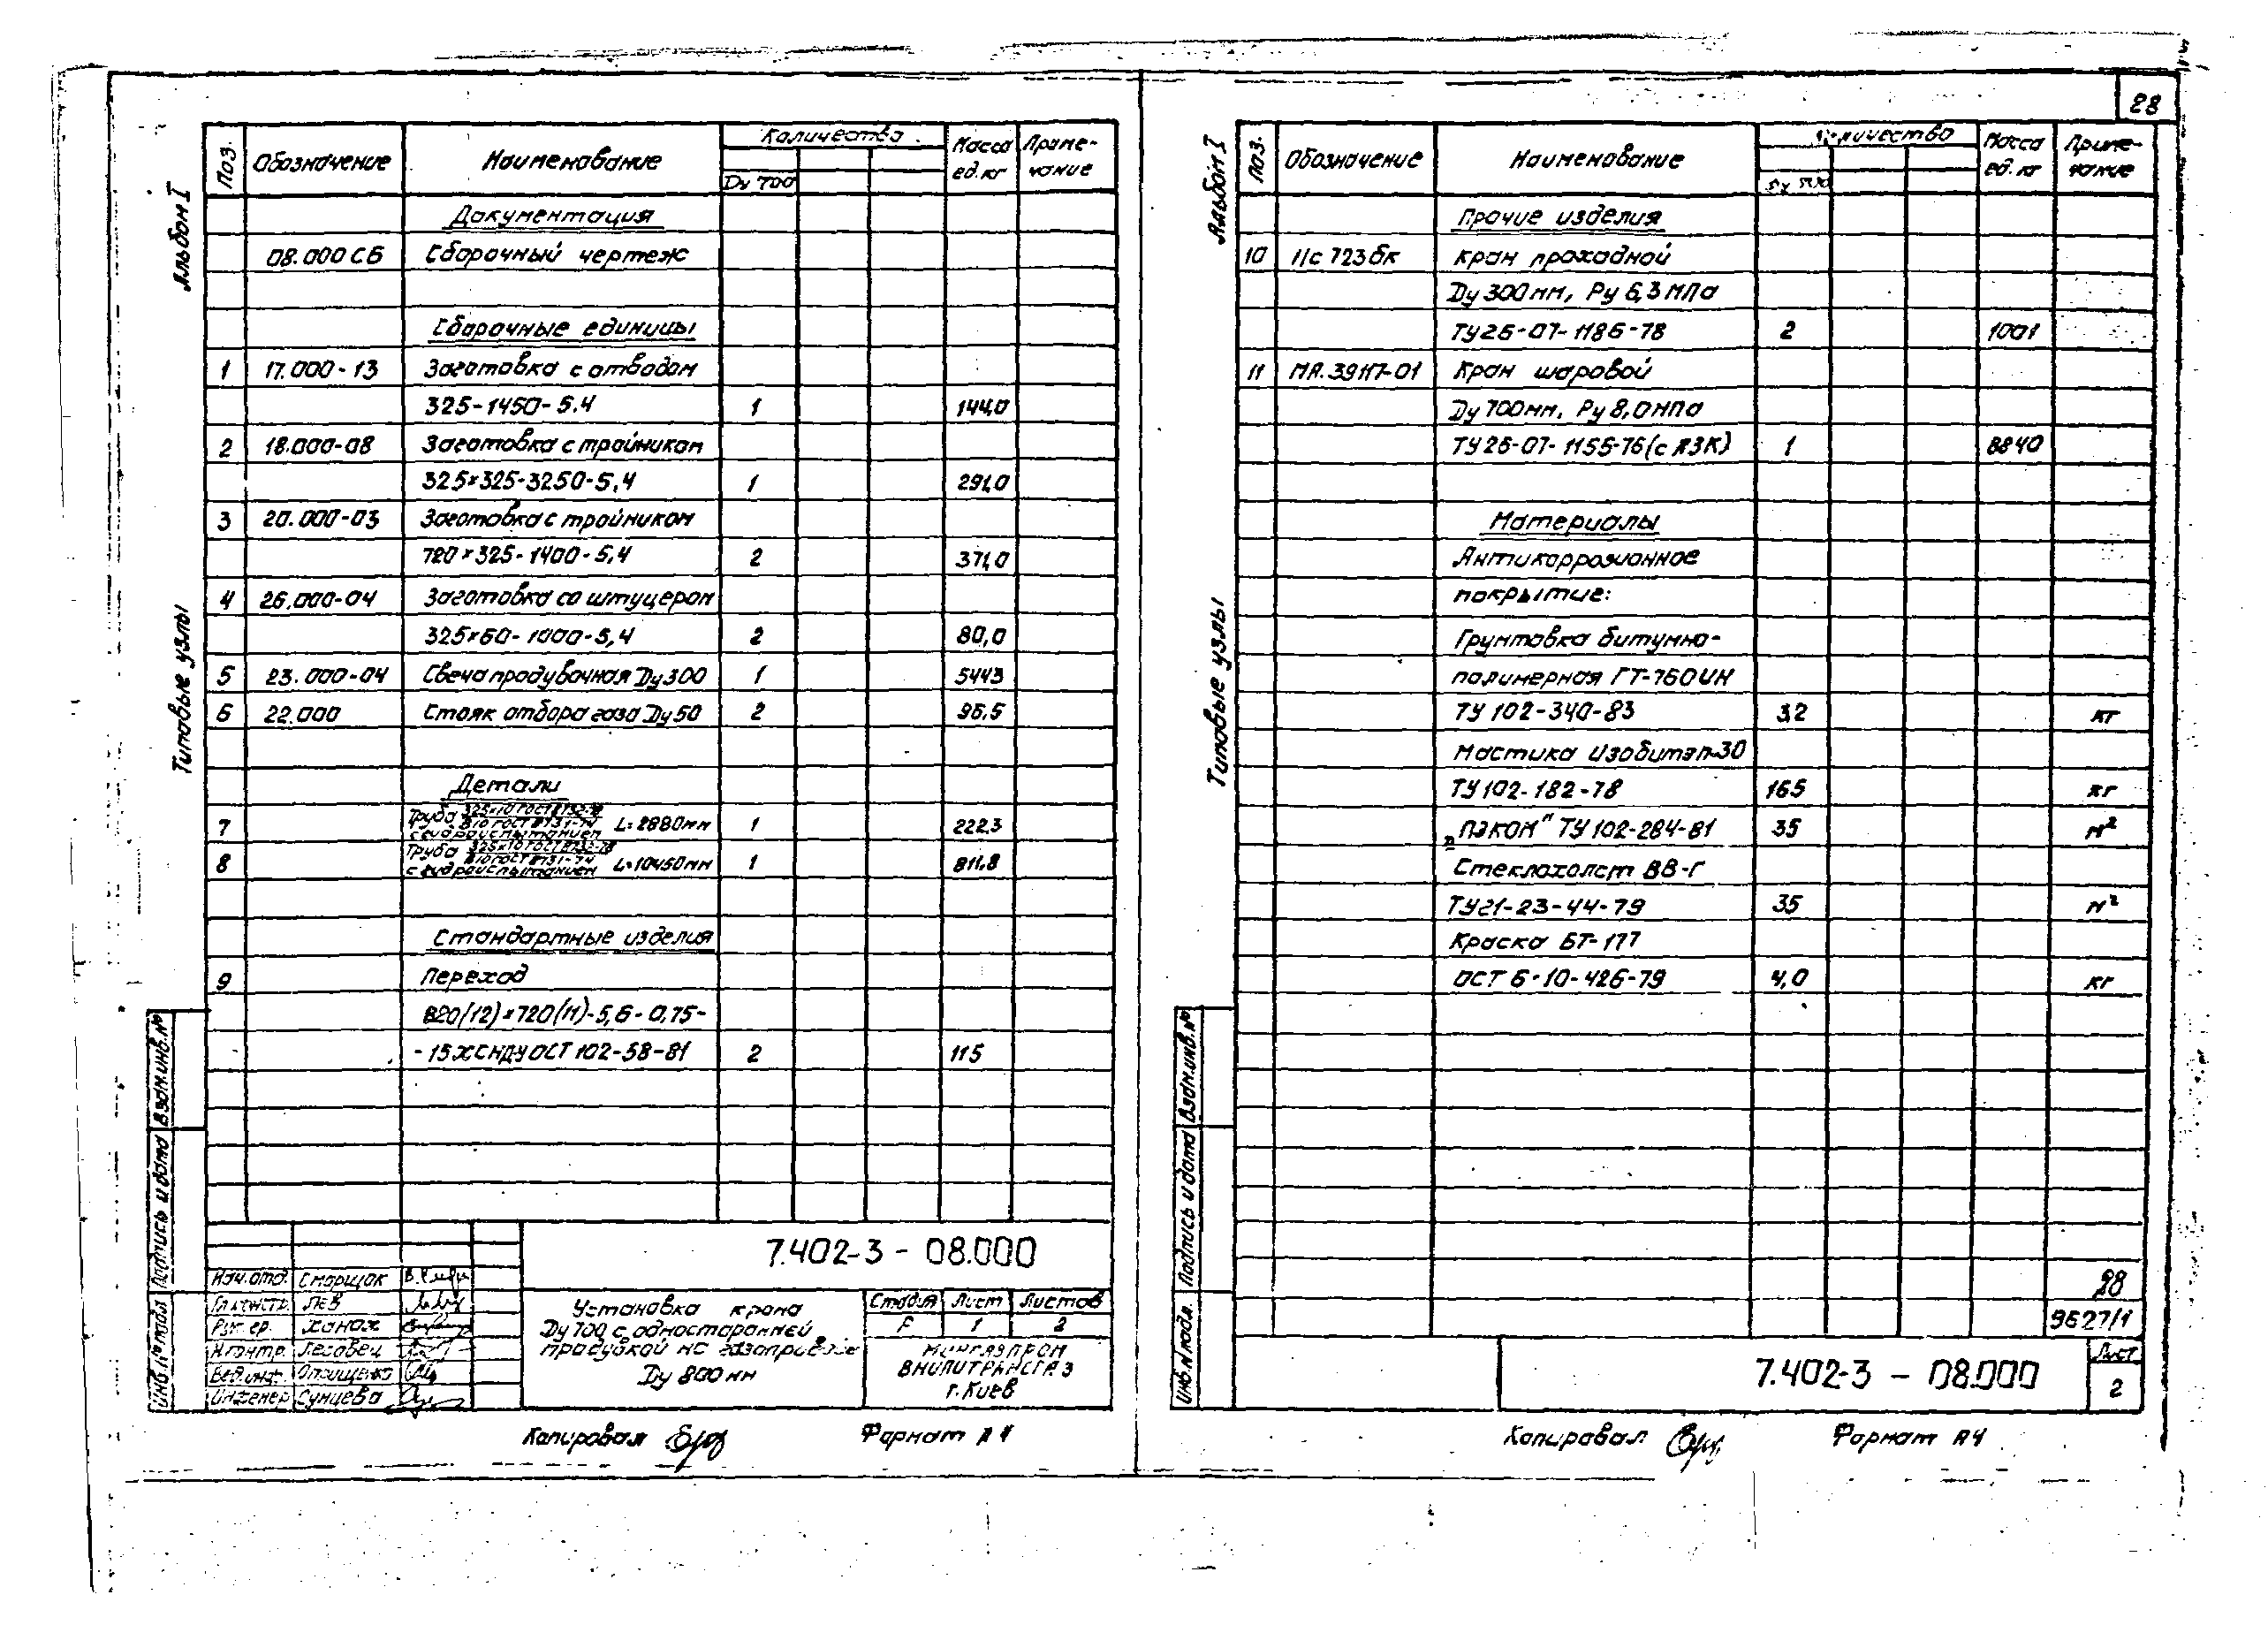 28
Альбом I
Типовые узлы
Поз. Обозначение Наименование Количество Масса ед. кг Приме-чание
Ду 700
Документация
08.000 СБ Сборочный чертеж
Сборочные единицы
1 17.000-13 Заготовка с отводом
325-1450-5.4 1 144,0
2 18.000-08 Заготовка с тройником
325×325-3250-5,4 1 291,0
3 20.000-03 Заготовка с тройником
720×325-1400-5,4 2 371,0
4 26.000-04 Заготовка со штуцером
325×60-1000-5,4 2 80,0
5 23.000-04 Свеча продувочная Ду 300 1 544,3
6 22.000 Стояк отбора газа Ду 50 2 96,5
Детали
7 Труба 325×10 ГОСТ 8732-78 / В10 ГОСТ 8731-74 L=2880мм 1 222,3
с гидроиспытанием
8 Труба 325×10 ГОСТ 8732-78 / В10 ГОСТ 8731-74 L=10450мм 1 811,8
с гидроиспытанием
Стандартные изделия
9 Переход
820(12)×720(11)-5,6-0,75-
-15ХСНДУ ОСТ 102-58-81 2 115
7.402-3 - 08.000
Нач.отд. Сморщок
Гл.констр. Лев
Рук. гр. Ханах
Н.контр. Лесовец
Вед.инж. Онищенко
Инженер Сунцева
Установка крана
Ду 700 с односторонней
продувкой на газопроводе
Ду 800 мм
Стадия Лист Листов
Р 1 2
Мингазпром
ВНИПИТРАНСГАЗ
г. Киев
Инв.№ подл. Подпись и дата Взам.инв.№
Копировал Формат А4
Альбом I
Типовые узлы
Поз. Обозначение Наименование Количество Масса ед. кг Приме-чание
Ду 700
Прочие изделия
10 11с 723бк Кран проходной
Ду 300мм, Ру 6,3 МПа
ТУ 26-07-1186-78 2 1001
11 МА.39117-01 Кран шаровой
Ду 700мм, Ру 8,0 МПа
ТУ 26-07-1155-76 (с ЯЗК) 1 8840
Материалы
Антикоррозионное
покрытие:
Грунтовка битумно-
полимерная ГТ-760ИН
ТУ 102-340-83 3,2 кг
Мастика Изобитэп-30
ТУ 102-182-78 165 кг
„ПЭКОМ" ТУ 102-284-81 35 м²
Стеклохолст ВВ-Г
ТУ21-23-44-79 35 м²
Краска БТ-177
ОСТ 6-10-426-79 4,0 кг
28
9627/1
7.402-3 - 08.000
Лист
2
Инв.№ подл. Подпись и дата Взам.инв.№
Копировал Формат А4